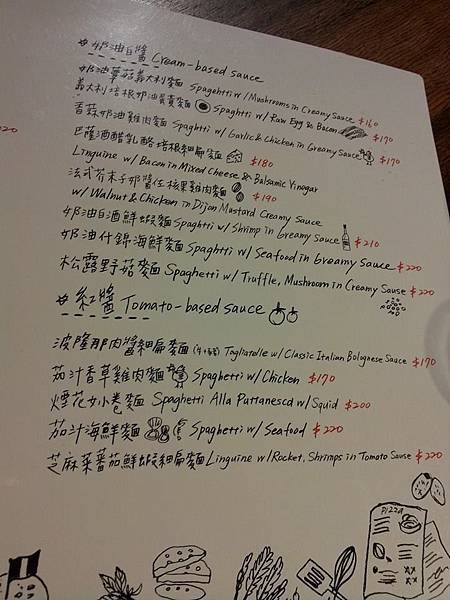 # 奶油白醬 Cream-based sauce
奶油蘑菇義大利麵 Spaghetti w/ Mushrooms in Creamy Sauce $160
義大利培根奶油蛋黃麵 Spaghtti w/ Raw Egg & Bacon $170
香蒜奶油雞肉麵 Spaghtti w/ Garlic & Chicken in Creamy Sauce $170
巴薩酒醋乳酪培根細扁麵 $180
Linguine w/ Bacon in Mixed Cheese & Balsamic Vinegar
法式芥末子奶醬佐核果雞肉麵 $190
w/ Walnut & Chicken in Dijon Mustard Creamy Sauce
奶油白酒鮮蝦麵 Spaghtti w/ Shrimp in Creamy Sauce $210
奶油什錦海鮮麵 Spaghtti w/ Seafood in Creamy Sauce $220
松露野菇麵 Spaghetti w/ Truffle, Mushroom in Creamy Sause $220
# 紅醬 Tomato-based sauce
波隆那肉醬細扁麵 Tagliatelle w/ Classic Italian Bolognese Sauce $170
茄汁香草雞肉麵 Spaghetti w/ Chicken $170
煙花女小卷麵 Spaghetti Alla Puttanesca w/ Squid $200
茄汁海鮮麵 Spaghetti w/ Seafood $220
芝麻葉蕃茄鮮蝦細扁麵 Linguine w/ Rocket, Shrimps in Tomato Sause $220
PIZZA